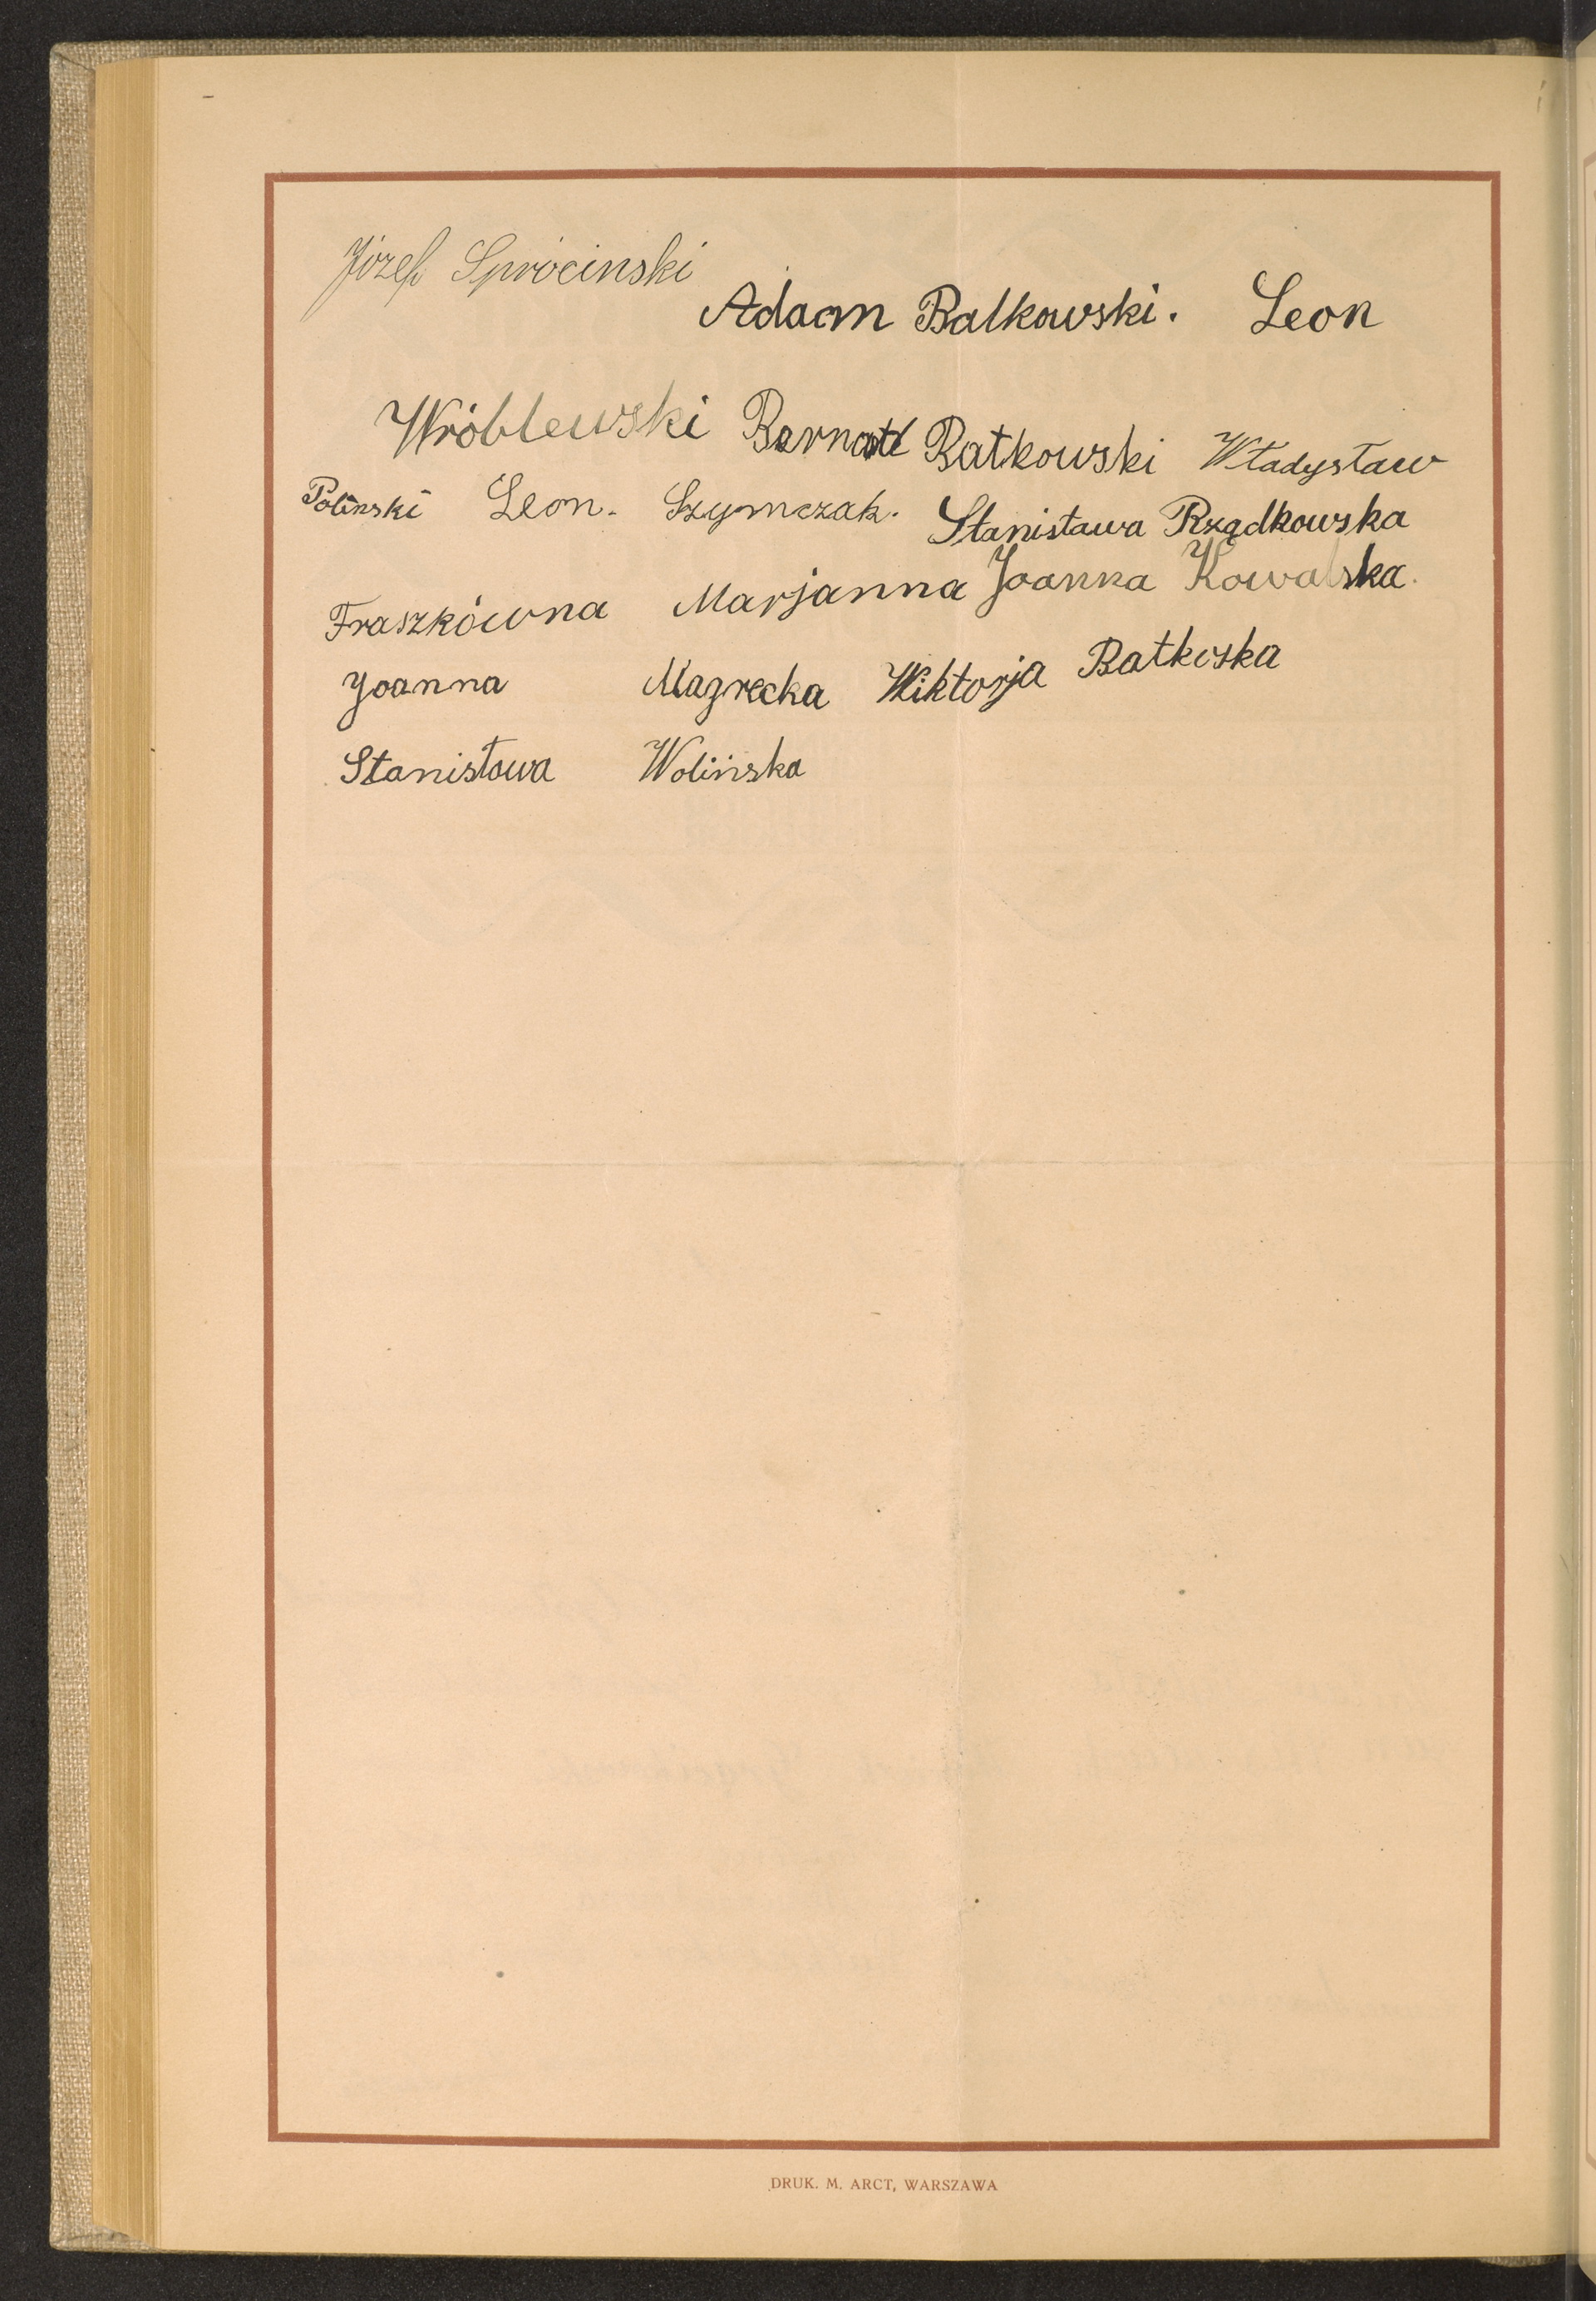 Józef Sprócinski
Adam Balkowski. Leon
Wróblewski Bernatd Batkowski Władysław
Poliński Leon. Szymczak. Stanisława Rządkowska
Fraszkówna Marjanna Joanna Kowalska.
Joanna Mazrecka Wiktorja Batkoska
Stanisława Wolińska
DRUK. M. ARCT, WARSZAWA